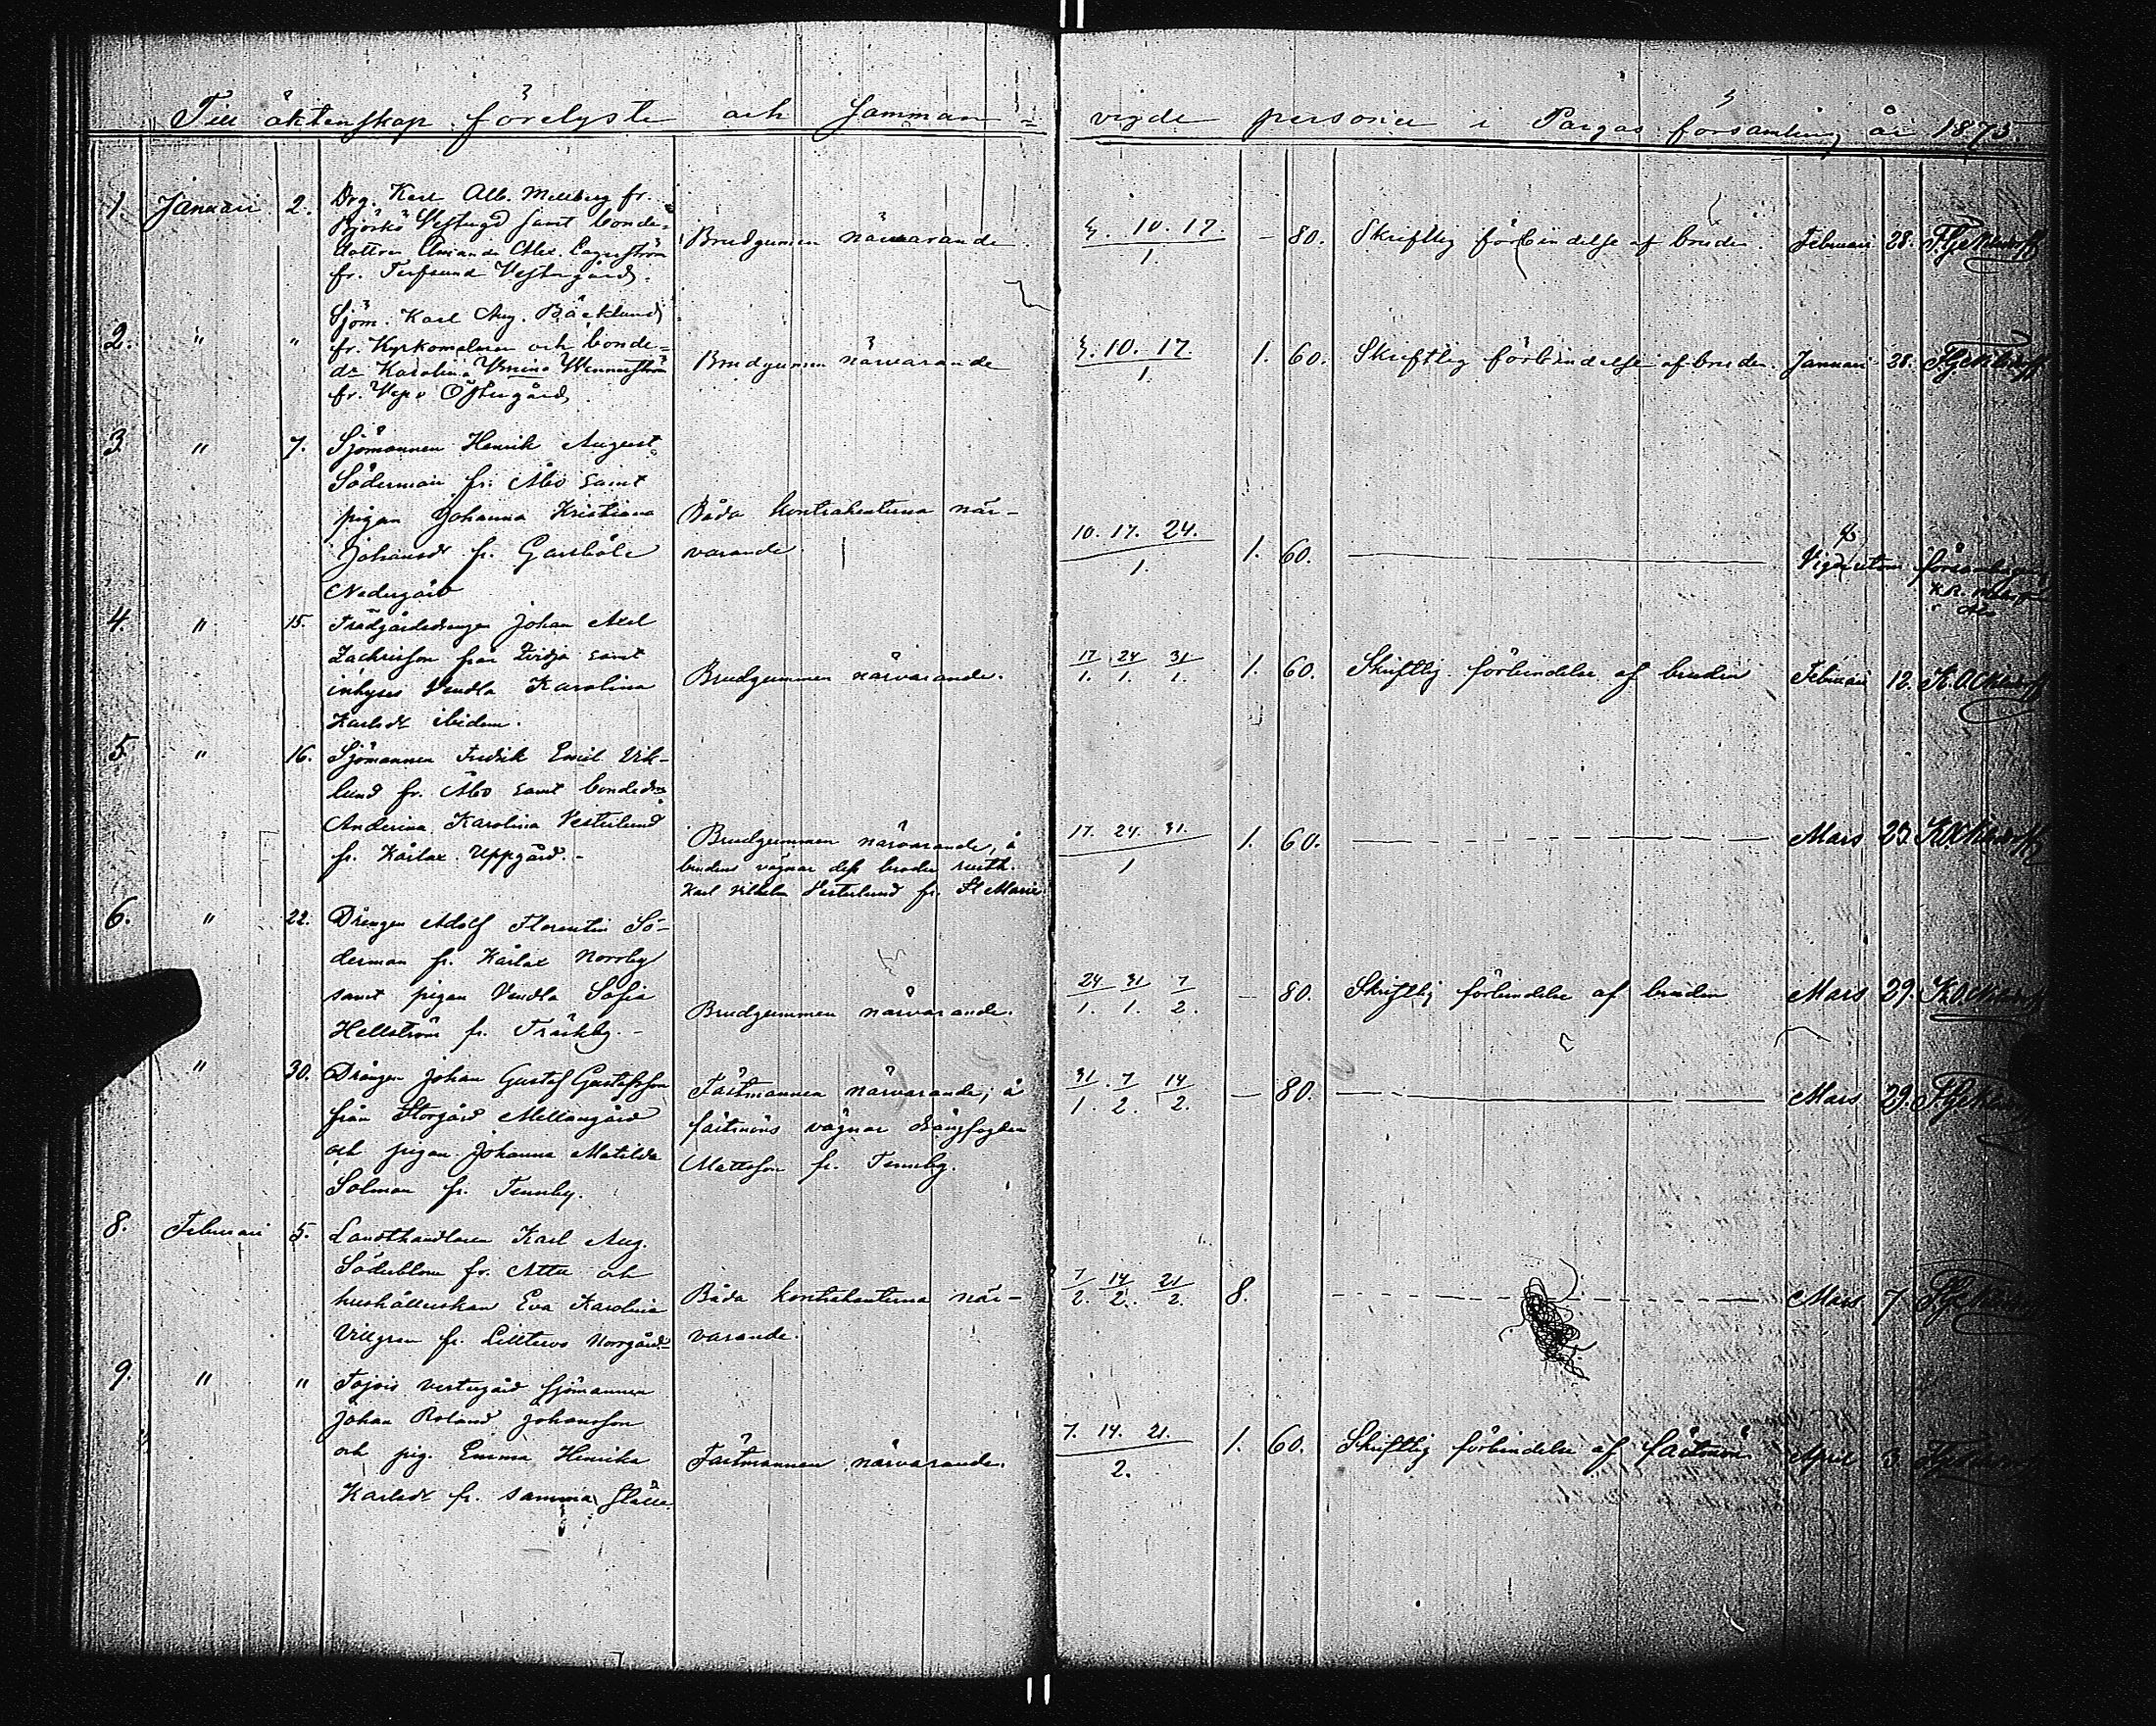 Till äktenskap förelyste och Samman-
vigde personer i Pargas församling år 1875.
1. Januari 2. Drg. Karl Alb. Mellberg fr.
Björkö Vestergd samt bonde-
dottren Amanda Alex. Lagerström
fr. Terfsund Vestergård.
Brudgumen närvarande
3. 10. 17.
1
- 80. Skriftlig förbindelse af bruden. Februari 28.
2. " " Sjöm. Karl Aug. Bäcklund
fr. Kyrkomalmen och bonde-
dr Karolina Vennerström
fr. Östergård
Brudgumen närvarande
3. 10. 17.
1.
1. 60. Skriftlig förbindelse af bruden. Januari 28.
3. " 7. Sjömannen Henrik August
Söderman fr. Åbo samt
pigan Johanna Kristiana
Johansdr fr. Garsböle
Nedergård
Båda kontrahenterna när-
varande.
10. 17. 24.
1.
1. 60.
Vigde utom församlingen
4. " 15. Trädgårdsdrengen Johan Axel
Zachrisson från samt
inhyses Vendla Karolina
Karlsdr ibidem.
Brudgummen närvarande.
17 24 31
1. 1. 1.
1. 60. Skriftlig förbindelse af bruden Februari 12.
5. " 16. Sjömannen Fredrik Emil Vik-
lund fr. Åbo samt bondedr
Anderina Karolina Vesterlund
fr. Kårlax Uppgård.-
Brudgummen närvarande, å
brudens vägnar dess broder
Karl Vilhelm Vesterlund fr. St Marie
17. 24. 31.
1
1. 60. Mars 23.
6. " 22. Drängen Adolf Florentin Sö-
derman fr. Kårlax Norrby
samt pigan Vendla Sofia
Hellström fr. Träskby.-
Brudgummen närvarande.
24 31 7
1. 1. 2.
- 80. Skriftlig förbindelse af bruden Mars 29.
" 30. Drängen Johan Gustaf Gustafsson
från Storgård Mellangård
och pigan Johanna Matilda
Solman fr. Tennby.
Fästmannen närvarande; å
fästmöns vägnar
Mattsson fr. Tennby.
31 7 14
1. 2. 2.
- 80. Mars 29.
8. Februari 5. Landthandlaren Karl Aug.
Söderblom fr. Attu och
hushållerskan Eva Karolina
Villgren fr. Lilltervo Norrgård-
Båda kontrahenterna när-
varande.
7 14 21
2. 2. 2.
8. Mars 7
9. " " Vestergård sjömannen
Johan Roland Johansson
och pig. Emma Henrika
Karlsdr fr. samma ställe.
Fästmannen närvarande.
7. 14. 21.
2.
1. 60. Skriftlig förbindelse af fästmön April 3